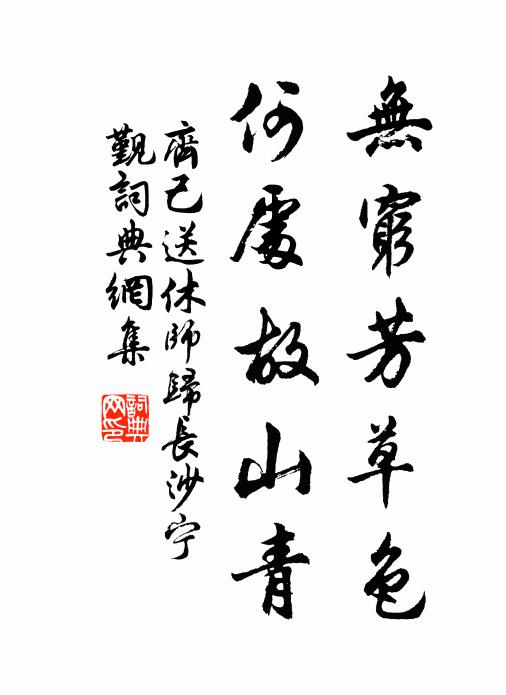 無窮芳草色
何處故山青
齊己送休師歸長沙宁
覲詞典網集
詞典
网印